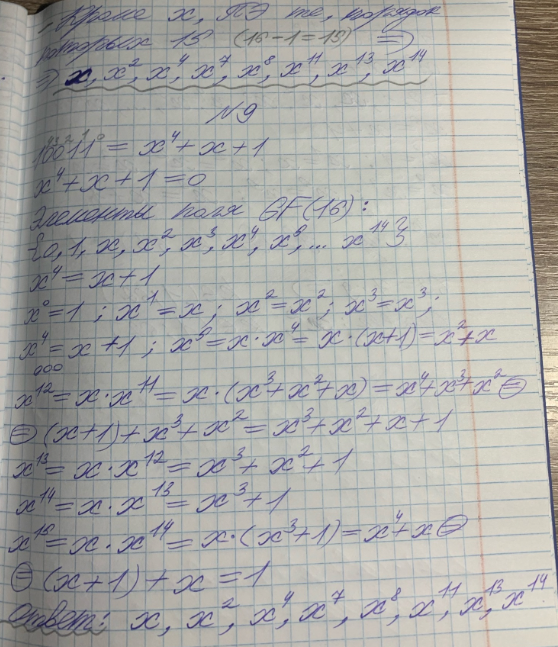 Кроме x, ПЭ те, порядок
которых 15 (16-1=15) ⇒
⇒ x, x², x⁴, x⁷, x⁸, x¹¹, x¹³, x¹⁴
№9
10011 = x⁴+x+1
x⁴+x+1=0
Элементы поля GF(16):
{0, 1, x, x², x³, x⁴, x⁵, ... x¹⁴}
x⁴=x+1
x⁰=1; x¹=x; x²=x²; x³=x³;
x⁴=x+1; x⁵=x·x⁴=x·(x+1)=x²+x
ooo
x¹²=x·x¹¹=x·(x³+x²+x)=x⁴+x³+x² ⊖
⊖ (x+1)+x³+x²=x³+x²+x+1
x¹³=x·x¹²=x³+x²+1
x¹⁴=x·x¹³=x³+1
x¹⁵=x·x¹⁴=x·(x³+1)=x⁴+x ⊖
⊖ (x+1)+x=1
Ответ: x, x², x⁴, x⁷, x⁸, x¹¹, x¹³, x¹⁴